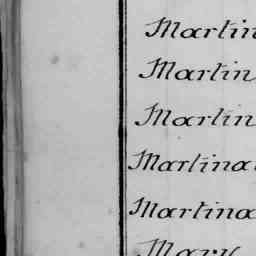 Martin
Martin
Martin
Martina
Martina
Mary